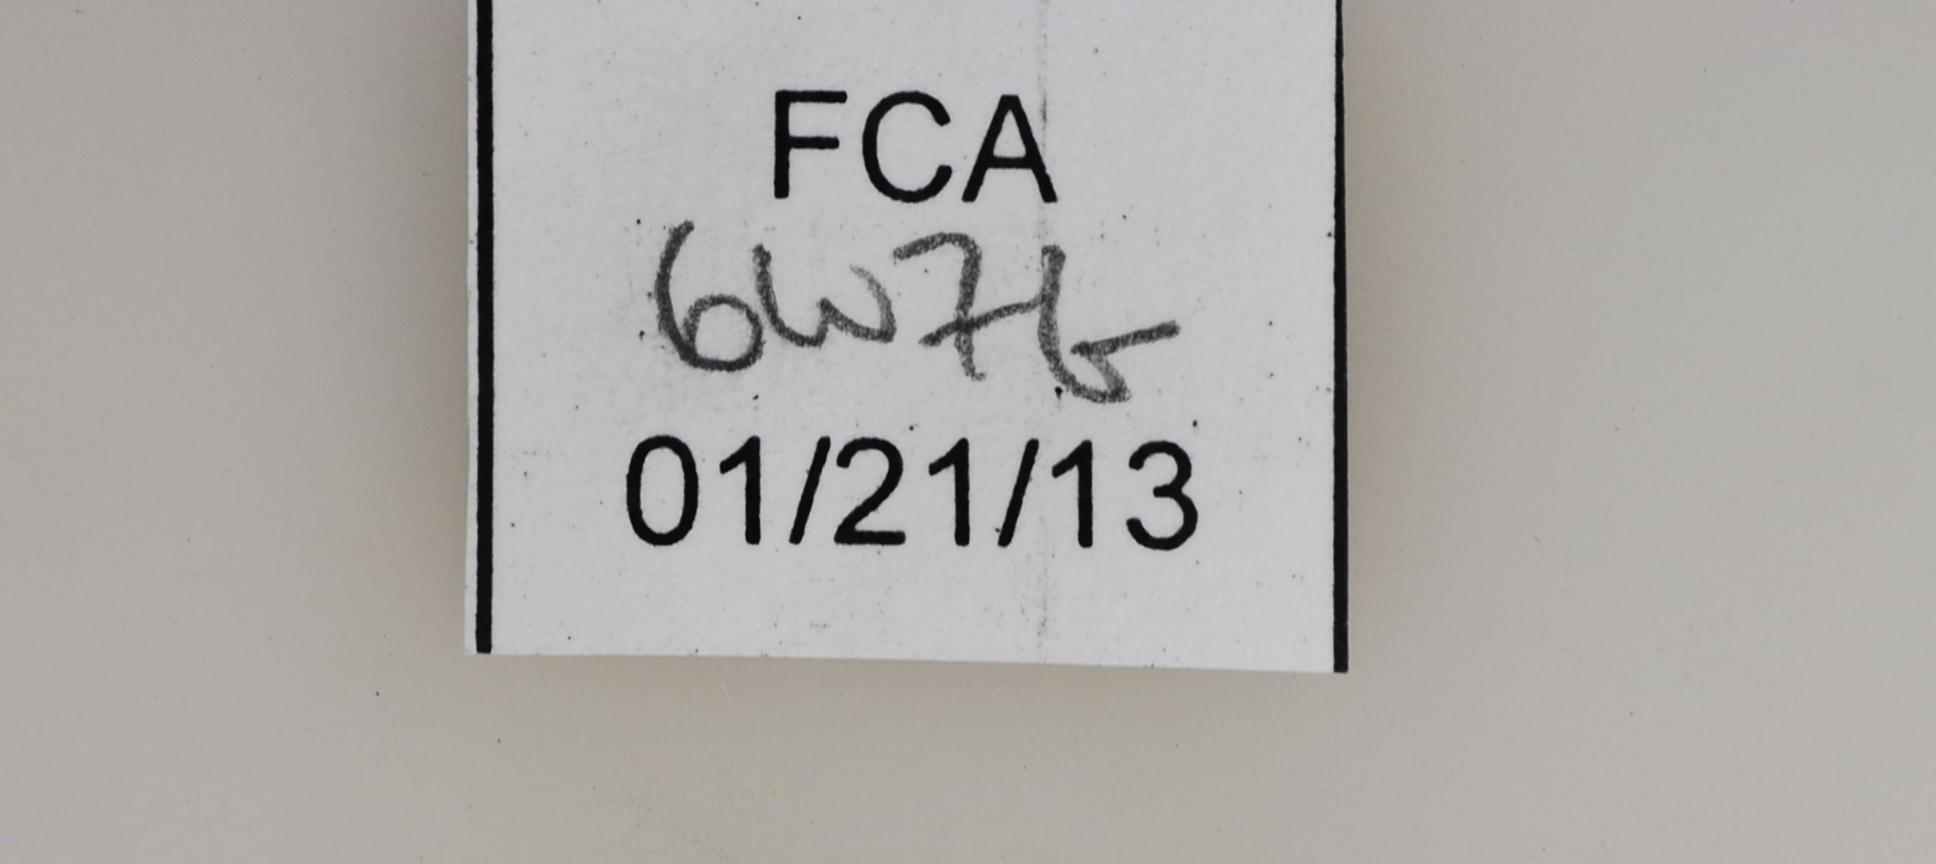 FCA
6W7G
01/21/13